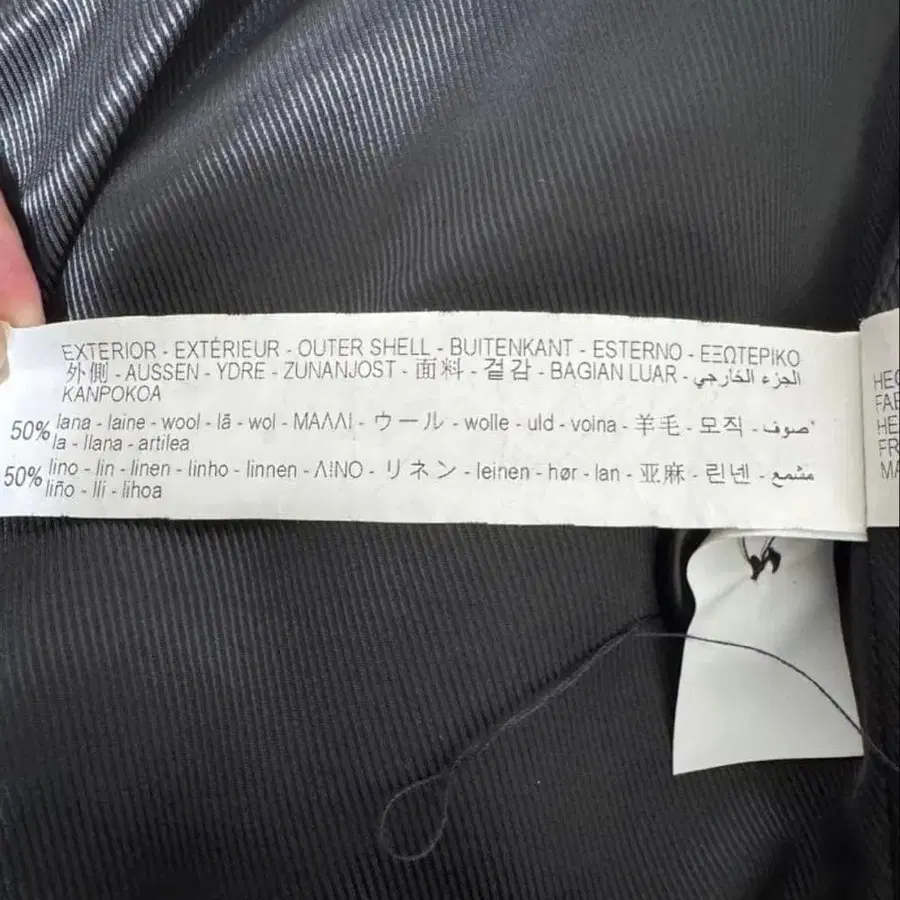 EXTERIOR - EXTÉRIEUR - OUTER SHELL - BUITENKANT - ESTERNO - ΕΞΩΤΕΡΙΚΟ
外側 - AUSSEN - YDRE - ZUNANJOST - 面料 - 겉감 - BAGIAN LUAR - الجزء الخارجي
KANPOKOA
50% lana - laine - wool - lã - wol - ΜΑΛΛΙ - ウール - wolle - uld - volna - 羊毛 - 모직 - صوف
la - llana - artilea
50% lino - lin - linen - linho - linnen - ΛΙΝΟ - リネン - leinen - hør - lan - 亚麻 - 린넨 - مشمع
liño - lli - lihoa
HEC
FAB
HE
FR
MA